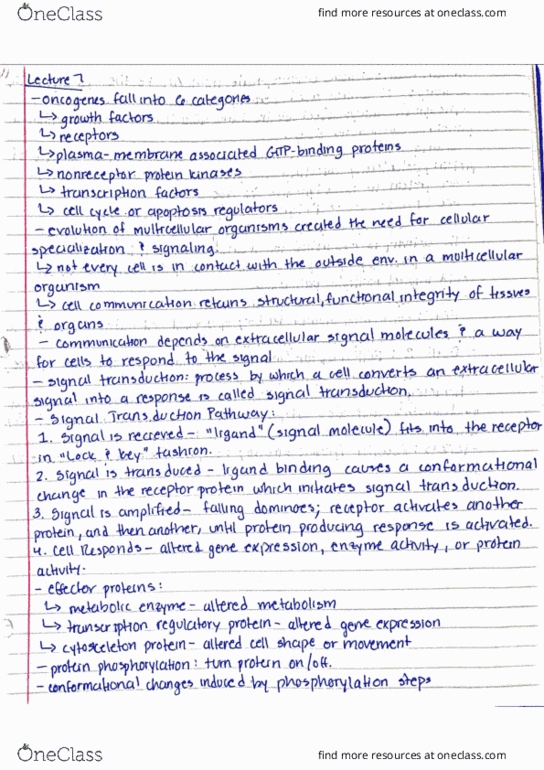 OneClass
find more resources at oneclass.com
Lecture 7
-oncogenes fall into 6 categories
↳growth factors
↳receptors
↳plasma-membrane associated GTP-binding proteins
↳nonreceptor protein kinases
↳transcription factors
↳ cell cycle or apoptosis regulators
- evolution of multicellular organisms created the need for cellular
specialization & signaling.
↳not every cell is in contact with the outside env. in a multicellular
organism
↳ cell communication retains structural, functional, integrity of tissues
& organs
- communication depends on extracellular signal molecules & a way
for cells to respond to the signal
- signal transduction: process by which a cell converts an extracellular
signal into a response is called signal transduction.
- Signal Transduction Pathway:
1. Signal is recieved - "ligand" (signal molecule) fits into the receptor
in "Lock & key" fashion.
2. Signal is transduced - ligand binding causes a conformational
change in the receptor protein which initiates signal transduction.
3. Signal is amplified - falling dominoes; receptor activates another
protein, and then another, until protein producing response is activated.
4. Cell Responds - altered gene expression, enzyme activity, or protein
activity.
- effector proteins:
↳ metabolic enzyme - altered metabolism
↳ transcription regulatory protein - altered gene expression
↳ cytoskeleton protein - altered cell shape or movement
- protein phosphorylation: turn protein on/off.
- conformational changes induced by phosphorylation steps
OneClass
find more resources at oneclass.com